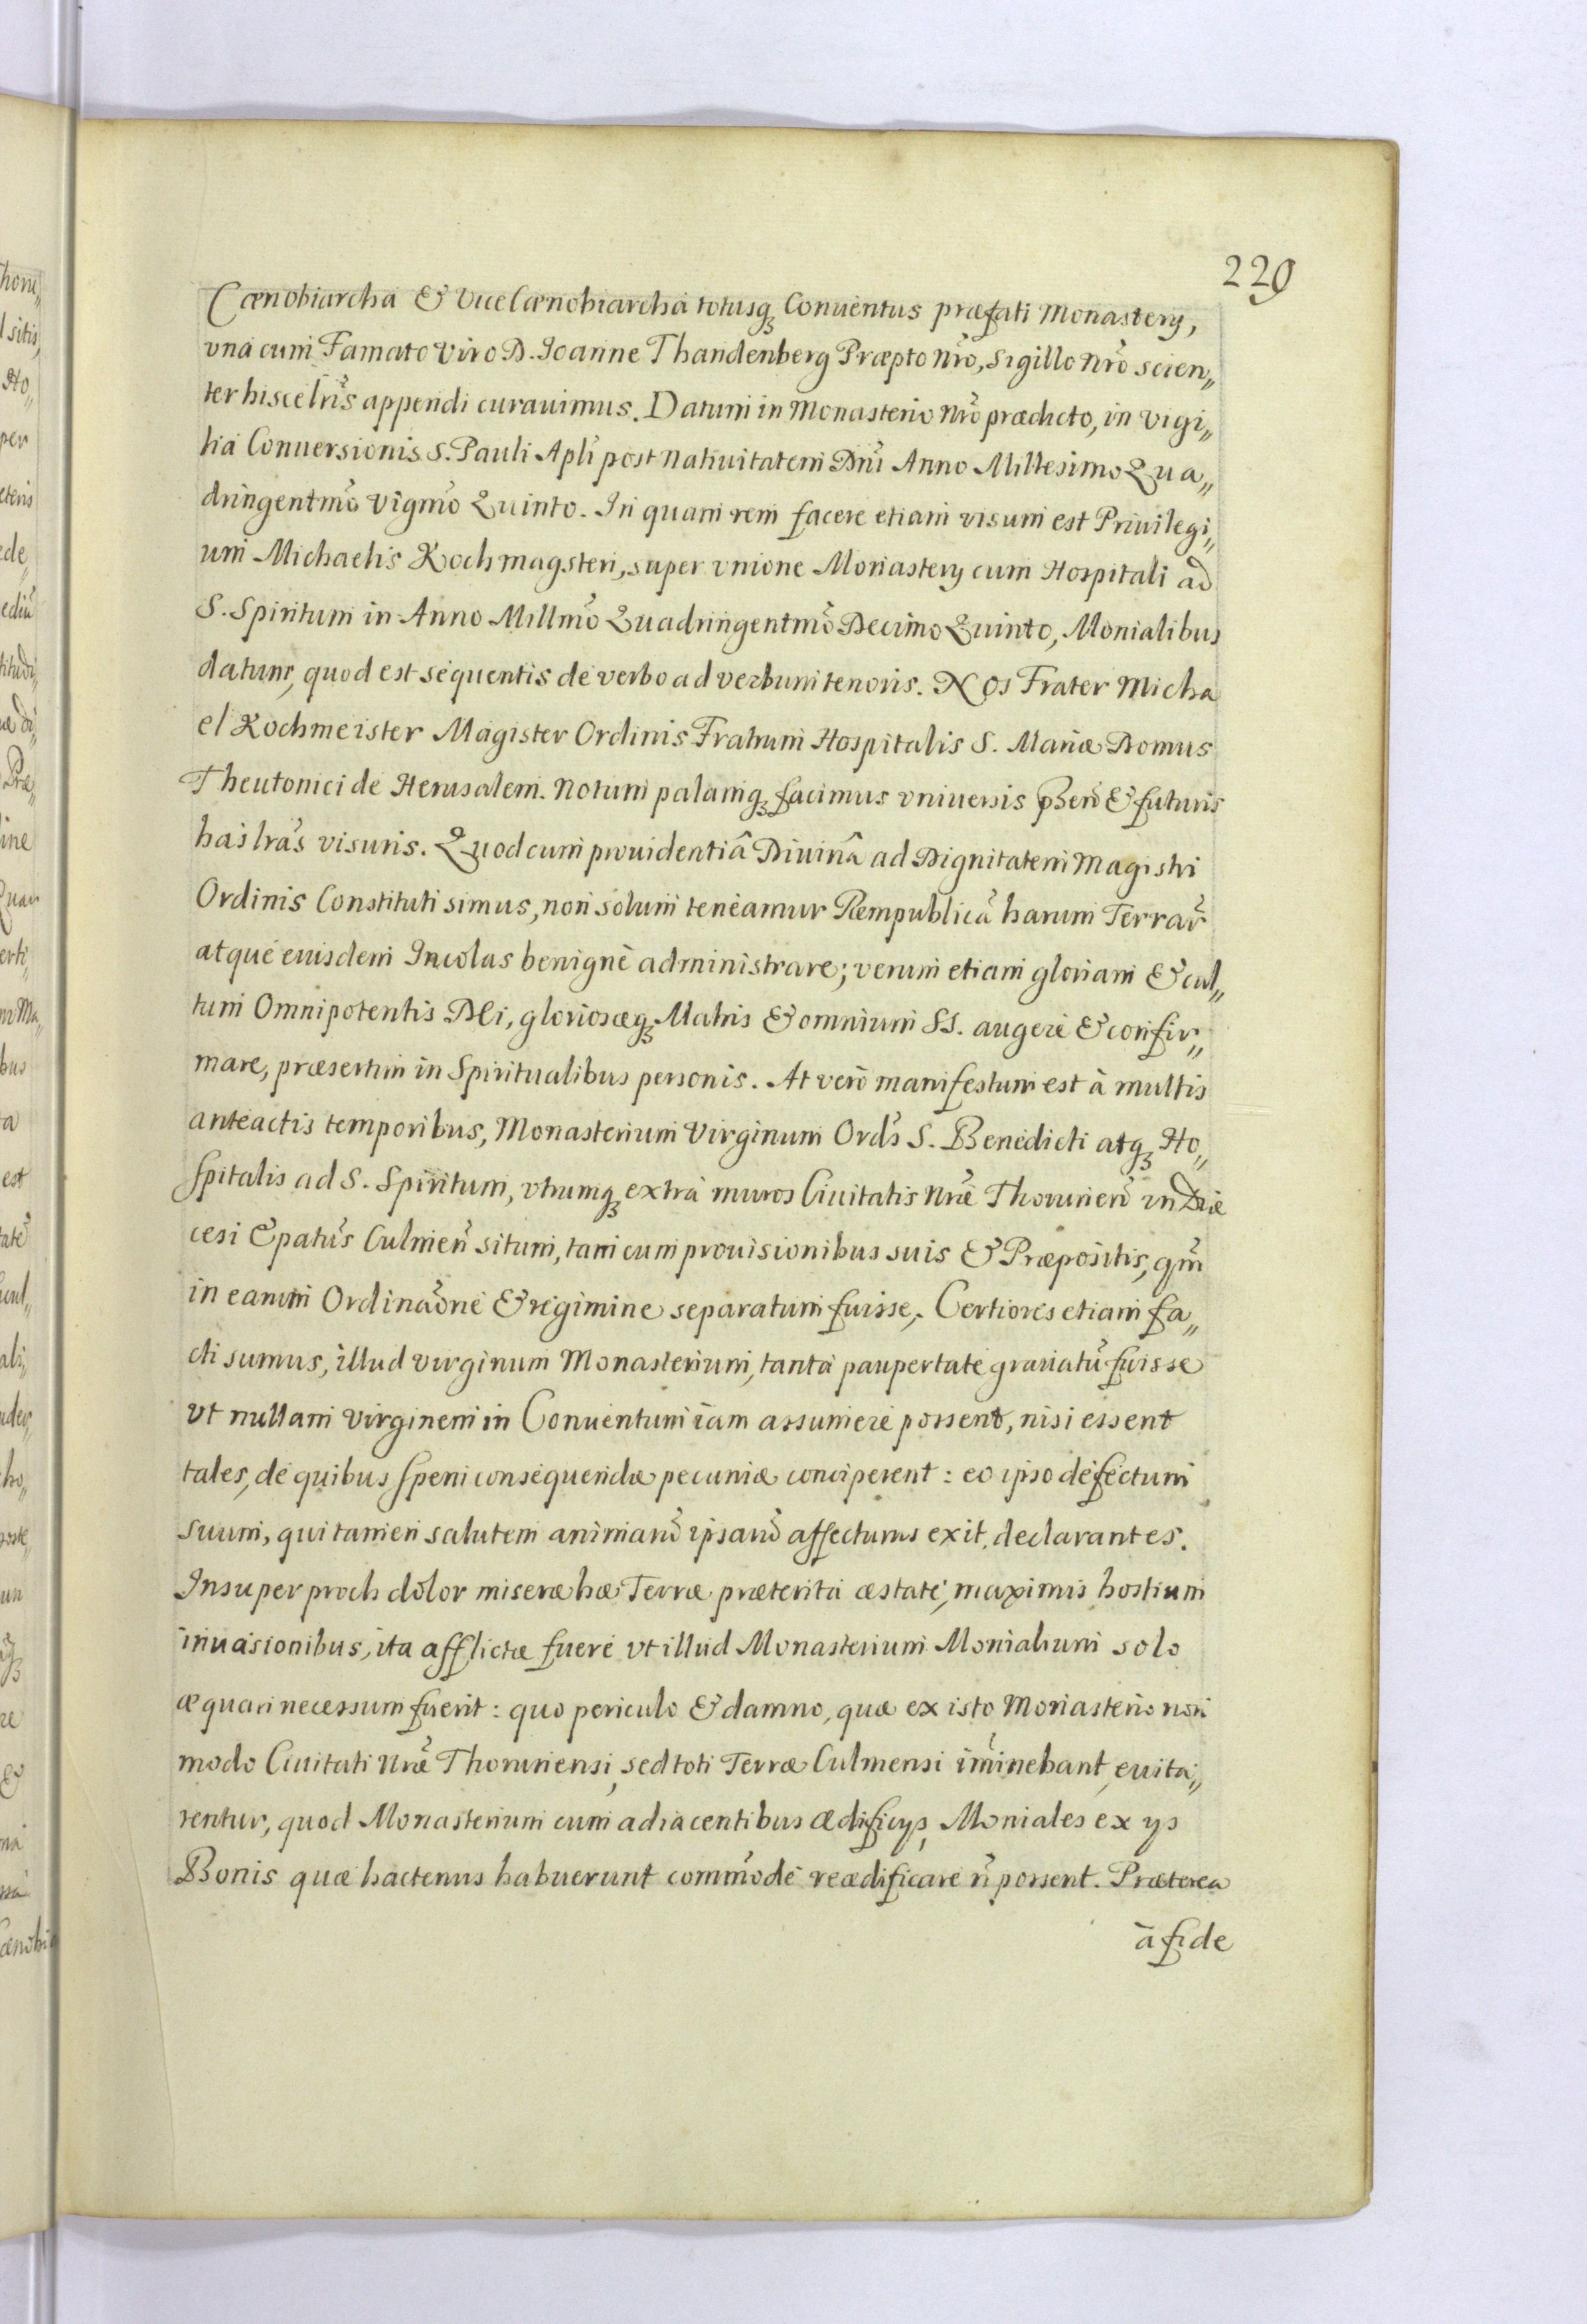 229
Cœnobiarcha & ViceCœnobiarcha totusq́ꝫ Conuentus præfati Monastery,
vna cum Famato Viro D. Ioanne Thandenberg Præpto nr̃o, Sigillo nr̃o scien„
ter hisce lr̃is appendi curauimus. Datum in Monasterio nr̃o prædicto, in Vigi„
lia Conuersionis S. Pauli Apl̃i post Natiuitatem Dñi Anno Millesimo Qua„
dringentm̃o Vigm̃o Quinto. In quam rem facere etiam visum est Priuilegi„
um Michaelis Kochmagsteri, super vnione Monastery cum Hospitali ad
S. Spiritum in Anno Millm̃o Quadringentm̃o Decimo Quinto, Monialibus
datum, quod est sequentis de verbo ad verbum tenoris. Nos Frater Micha
el Kochmeister Magister Ordinis Fratrum Hospitalis S. Mariæ Domus
Theutonici de Herusalem. Notum palamqꝫ facimus vniuersis p̃sen̄ & futuris
has lr̃as visuris. Quod cum prouidentiâ Diuinâ ad Dignitatem Magistri
Ordinis Constituti simus, non solum teneamur Rempublicã harum Terrar̃
atque eiusdem Incolas benignè administrare; verum etiam gloriam & cul„
tum Omnipotentis DEi, gloriosæqꝫ Matris & omnium SS. augere & confir„
mare, præsertim in Spiritualibus personis. At verò manifestum est à multis
anteactis temporibus, Monasterium Virginum Ord̃s S. Benedicti atqꝫ Ho„
spitalis ad S. Spiritum, vtrumqꝫ extrà muros Ciuitatis Nr̃æ Thorunen̄ in Diæ
cesi Epatũs Culmen̄ situm, tam cum prouisionibus suis & Præpositis, qm̃
in earum Ordinaõne & regimine separatum fuisse, Certiores etiam fa„
cti sumus, illud virginum Monasterium, tanta paupertate grauatũ fuisse
vt nullam Virginem in Conuentum iam assumere possent, nisi essent
tales, de quibus spem consequendæ pecuniæ conciperent: eo ipso defectum
suum, qui tamen salutem animarũ ipsarũ affecturus exit, declarantes.
Insuper proch dolor miseræ hæ Terræ præterita æstate, maximis hostium
inuasionibus, ita afflictæ fuere vt illud Monasterium Monialium solo
æquari necessum fuerit: quo periculo & damno, quæ ex isto Monasterio non
modo Ciuitati Nr̃æ Thoruniensi, sed toti Terræ Culmensi im̃inebant, euita„
rentur, quod Monasterium cum adiacentibus ædificys, Moniales ex ys
Bonis quæ hactenus habuerunt com̃odè reædificare ñ possent. Præterea
à fide